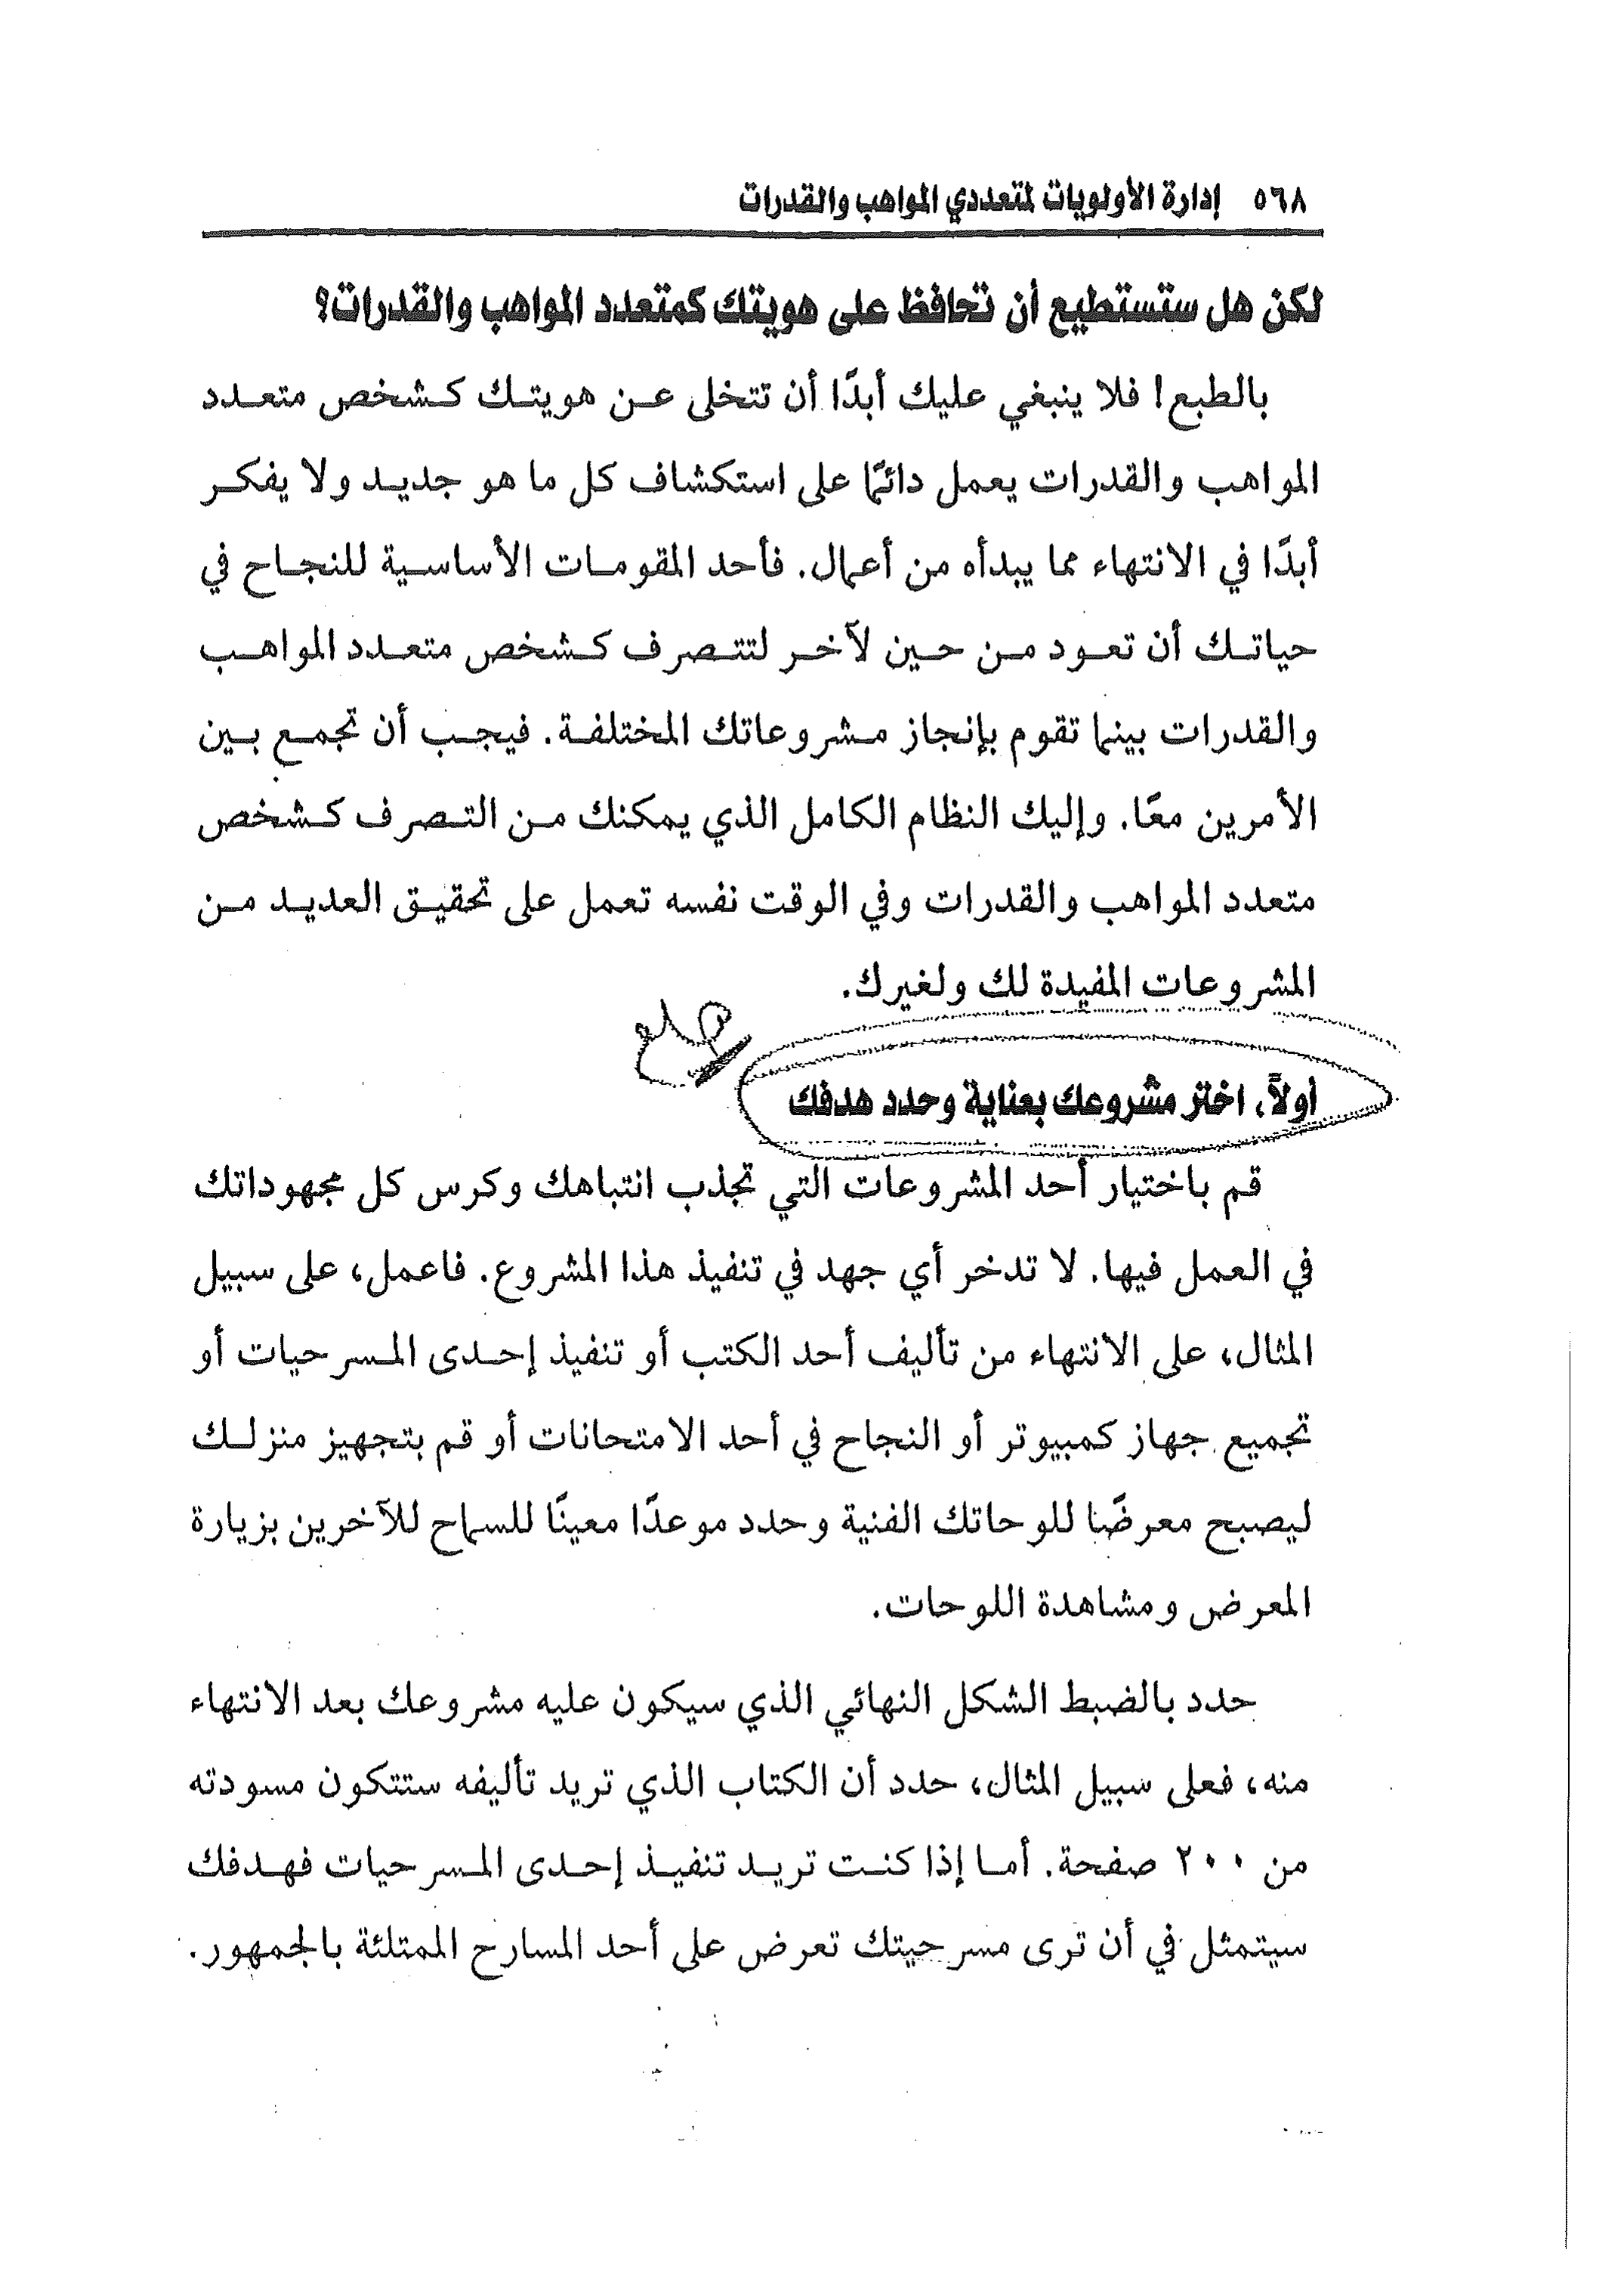 ٥٦٨ إدارة الأولويات لمتعددي المواهب والقدرات
لكن هل ستستطيع أن تحافظ على هويتك كمتعدد المواهب والقدرات؟
بالطبع! فلا ينبغي عليك أبدًا أن تتخلى عن هويتك كشخص متعدد
المواهب والقدرات يعمل دائمًا على استكشاف كل ما هو جديد ولا يفكر
أبدًا في الانتهاء مما يبدأه من أعمال. فأحد المقومات الأساسية للنجاح في
حياتك أن تعود من حين لآخر لتتصرف كشخص متعدد المواهب
والقدرات بينما تقوم بإنجاز مشروعاتك المختلفة. فيجب أن تجمع بين
الأمرين معًا. وإليك النظام الكامل الذي يمكنك من التصرف كشخص
متعدد المواهب والقدرات وفي الوقت نفسه تعمل على تحقيق العديد من
المشروعات المفيدة لك ولغيرك.
أولاً، اختر مشروعك بعناية وحدد هدفك
قم باختيار أحد المشروعات التي تجذب انتباهك وكرس كل مجهوداتك
في العمل فيها. لا تدخر أي جهد في تنفيذ هذا المشروع. فاعمل، على سبيل
المثال، على الانتهاء من تأليف أحد الكتب أو تنفيذ إحدى المسرحيات أو
تجميع جهاز كمبيوتر أو النجاح في أحد الامتحانات أو قم بتجهيز منزلك
ليصبح معرضًا للوحاتك الفنية وحدد موعدًا معينًا للسماح للآخرين بزيارة
المعرض ومشاهدة اللوحات.
حدد بالضبط الشكل النهائي الذي سيكون عليه مشروعك بعد الانتهاء
منه، فعلى سبيل المثال، حدد أن الكتاب الذي تريد تأليفه ستتكون مسودته
من ٢٠٠ صفحة. أما إذا كنت تريد تنفيذ إحدى المسرحيات فهدفك
سيتمثل في أن ترى مسرحيتك تعرض على أحد المسارح الممتلئة بالجمهور.